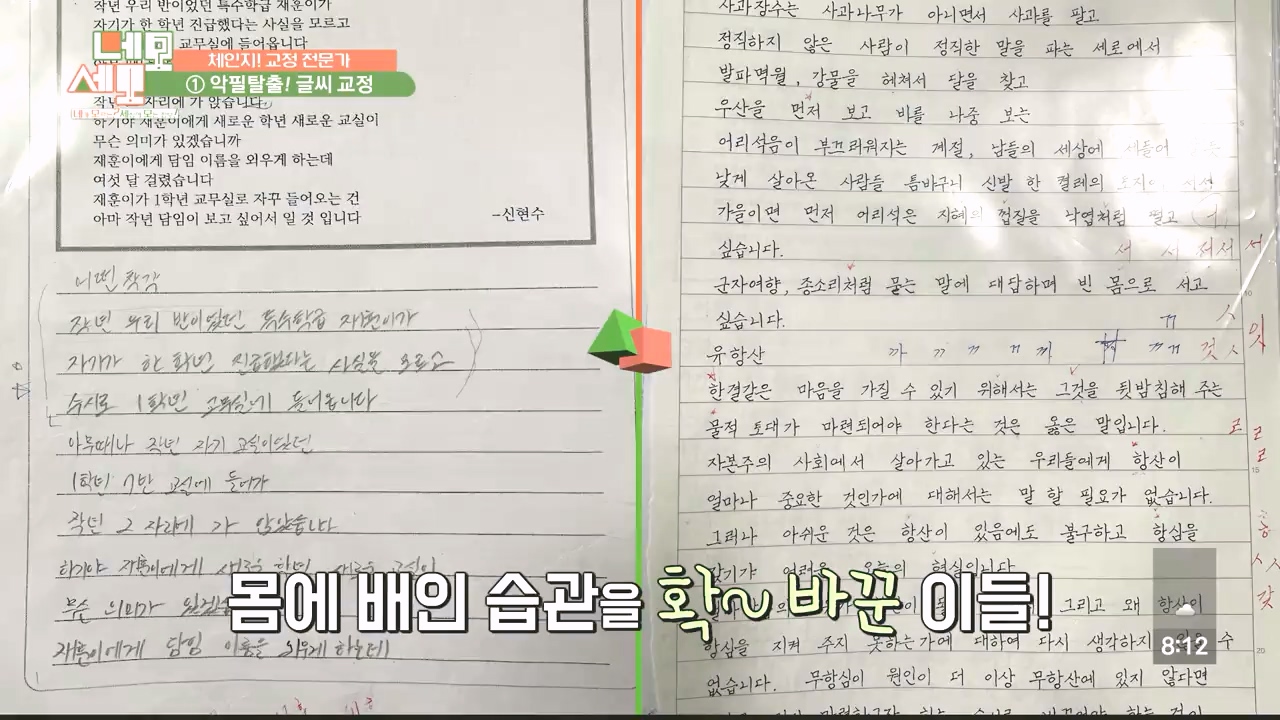 네모세모
네가 모르는 세상의 모든 것
체인지! 교정 전문가
① 악필탈출! 글씨 교정
작년 우리 반이었던 특수학급 재훈이가
자기가 한 학년 진급했다는 사실을 모르고
교무실에 들어옵니다
작년 그 자리에 가 앉습니다
하기야 재훈이에게 새로운 학년 새로운 교실이
무슨 의미가 있겠습니까
재훈이에게 담임 이름을 외우게 하는데
여섯 달 걸렸습니다
재훈이가 1학년 교무실로 자꾸 들어오는 건
아마 작년 담임이 보고 싶어서 일 것 입니다
-신현수
어떤 착각
작년 우리 반이었던 특수학급 재훈이가
자기가 한 학년 진급했다는 사실을 모르고
수시로 1학년 교무실에 들어옵니다
아무때나 작년 자기 교실이었던
1학년 7반 교실에 들어가
작년 그 자리에 가 앉았습니다
하기야 재훈이에게 새로운 학년 새로운 교실이
무슨 의미가
재훈이에게 담임 이름을 외우게 하는데
사과장수는 사과나무가 아니면서 사과를 팔고
정직하지 않은 사람이 정직한 말을 파는 세로에서
발파멱월, 강물을 헤쳐서 달을 찾고
우산을 먼저 보고 비를 나중 보는
어리석음이 부끄러워지는 계절, 남들의 세상에 세들어
낮게 살아온 사람들 틈바구니 신발 한 켤레의 토지에
가을이면 먼저 어리석은 지혜의 껍질을 낙엽처럼 떨고
싶습니다.
서 서 서
군자여향, 종소리처럼 묻는 말에 대답하며 빈 몸으로 서고
싶습니다.
유항산
까 ㄲ ㄲ ㄲ 께
것
잇
한결같은 마음을 가질 수 있기 위해서는 그것을 뒷받침해 주는
물적 토대가 마련되어야 한다는 것은 옳은 말입니다.
ㄹ ㄹ ㄹ
자본주의 사회에서 살아가고 있는 우리들에게 항산이
얼마나 중요한 것인가에 대해서는 말 할 필요가 없습니다.
그러나 아쉬운 것은 항산이 있음에도 불구하고 항심을
갖기가 어려운 오늘의 현실입니다
그리고 왜 항산이
갖
항심을 지켜 주지 못하는가에 대하여 다시 생각하지 않을 수
없습니다. 무항심이 원인이 더 이상 무항산에 있지 않다면
몸에 배인 습관을 확~ 바꾼 이들!
8:12